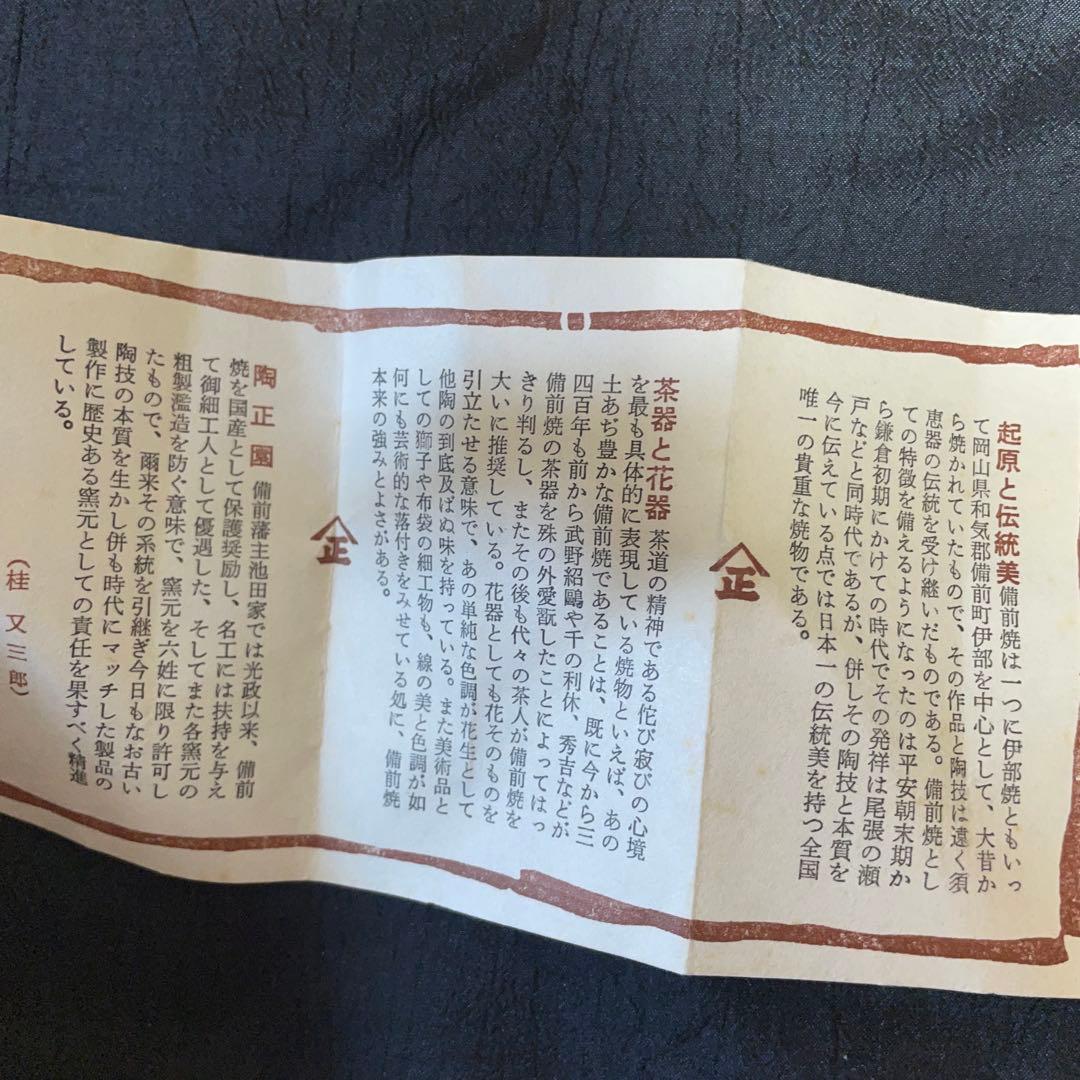 起原と伝統美 備前焼は一つに伊部焼ともいっ
て岡山県和気郡備前町伊部を中心として、大昔か
ら焼かれていたもので、その作品と陶技は遠く須
恵器の伝統を受け継いだものである。備前焼とし
ての特徴を備えるようになったのは平安朝末期か
ら鎌倉初期にかけての時代でその発祥は尾張の瀬
戸などと同時代であるが、併しその陶技と本質を
今に伝えている点では日本一の伝統美を持つ全国
唯一の貴重な焼物である。
正
茶器と花器 茶道の精神である侘び寂びの心境
を最も具体的に表現している焼物といえば、あの
土あぢ豊かな備前焼であることは、既に今から三
四百年も前から武野紹鷗や千の利休、秀吉などが
備前焼の茶器を殊の外愛翫したことによってはっ
きり判るし、またその後も代々の茶人が備前焼を
大いに推奨している。花器としても花そのものを
引立たせる意味で、あの単純な色調が花生として
他陶の到底及ばぬ味を持っている。また美術品と
しての獅子や布袋の細工物も、線の美と色調が如
何にも芸術的な落付きをみせている処に、備前焼
本来の強みとよさがある。
正
陶正園 備前藩主池田家では光政以来、備前
焼を国産として保護奨励し、名工には扶持を与え
て御細工人として優遇した、そしてまた各窯元の
粗製濫造を防ぐ意味で、窯元を六姓に限り許可し
たもので、爾来その系統を引継ぎ今日もなお古い
陶技の本質を生かし併も時代にマッチした製品の
製作に歴史ある窯元としての責任を果すべく精進
している。
(桂又三郎)